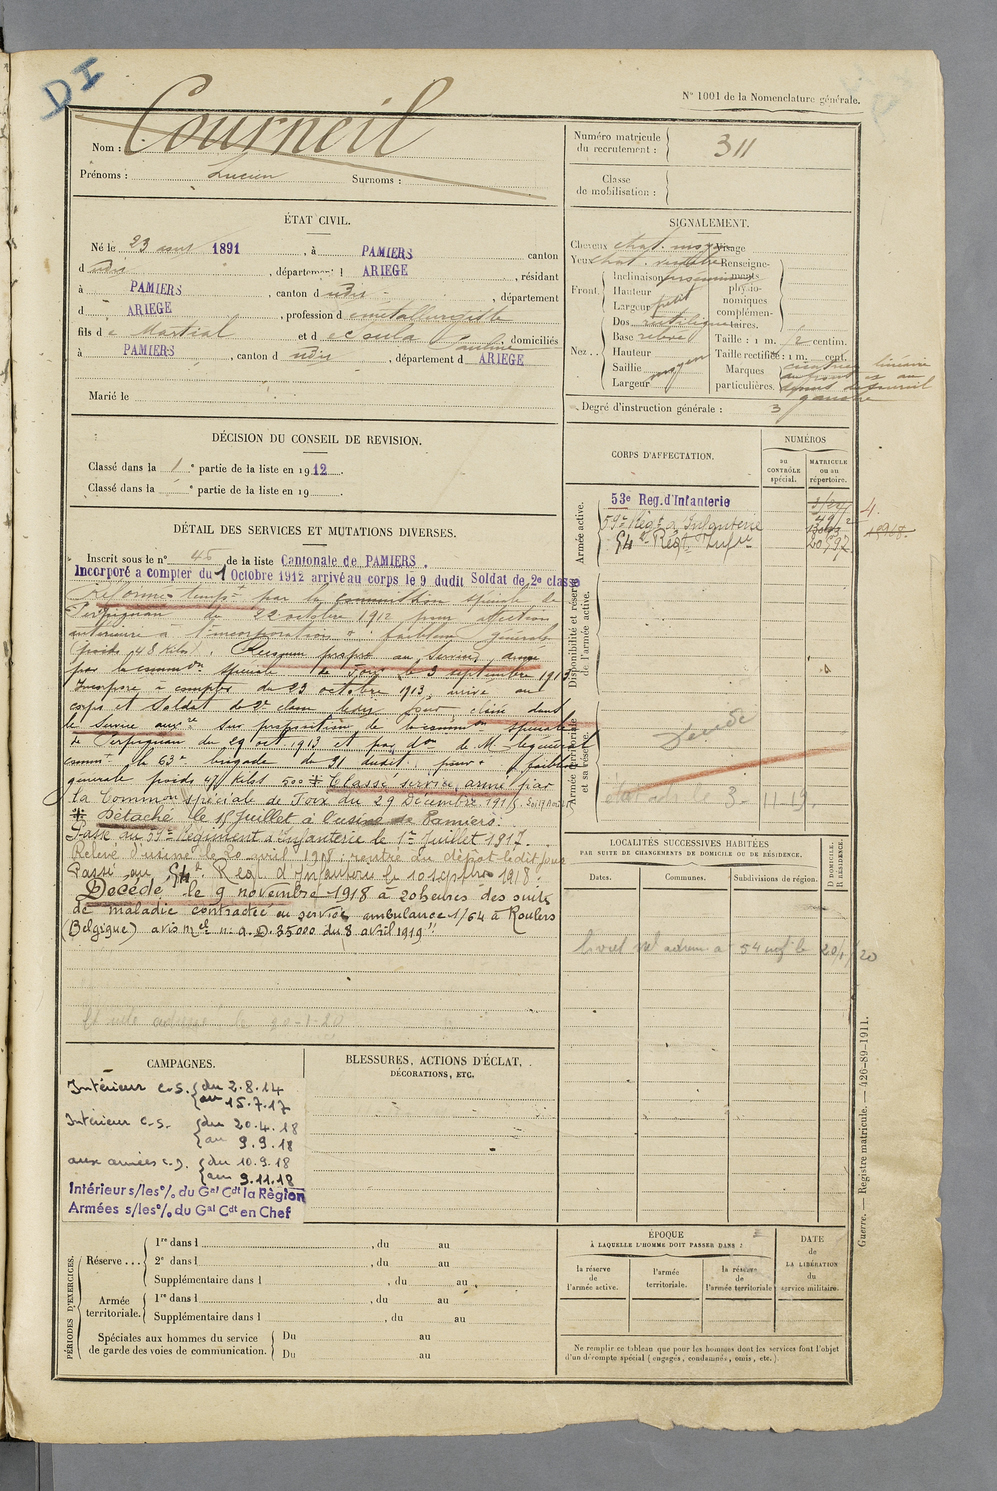 DI
N° 1001 de la Nomenclature générale.
Nom : Courneil
Prénoms : Lucien Surnoms :
Numéro matricule du recrutement : 311
Classe de mobilisation :
ÉTAT CIVIL.
Né le 23 août 1891, à PAMIERS canton
d udit, département d ARIEGE, résidant
à PAMIERS, canton d udit, département
d ARIEGE, profession d e métallurgiste
fils d e Martial et d e Pauline domiciliés
à PAMIERS, canton d udit, département d ARIEGE
Marié le
SIGNALEMENT.
Cheveux chat. moyen Visage
Yeux chat. verdâtre Renseignements physionomiques complémentaires.
Front. Inclinaison
Hauteur
Largeur petit
Dos rectiligne
Nez.. Base relevé
Hauteur
Saillie
Largeur moyen
Taille : 1 m. centim.
Taille rectifiée : 1 m. cent.
Marques particulières. cicatrice linéaire
gauche
Degré d'instruction générale : 3
DÉCISION DU CONSEIL DE REVISION.
Classé dans la 1e partie de la liste en 1912.
Classé dans la e partie de la liste en 19
CORPS D'AFFECTATION.
NUMÉROS
au CONTRÔLE spécial.
MATRICULE ou au répertoire.
Armée active.
53e Reg. d'Infanterie
59e Régt d'Infanterie
Disponibilité et réserve de l'armée active.
Armée territoriale et sa réserve.
Décédé
DÉTAIL DES SERVICES ET MUTATIONS DIVERSES.
Inscrit sous le n° 45 de la liste Cantonale de PAMIERS.
Incorporé a compter du 1 Octobre 1912 arrivé au corps le 9 dudit Soldat de 2e classe
Réformé tempre par la commission spéciale de
Perpignan du 22 octobre 1912 pour affection
antérieure à l'incorporation : faiblesse générale
(poids 48 Kilos). Reconnu propre au service armé
par la common spéciale de Foix le 3 septembre 1913
Incorporé à compter du 23 octobre 1913, arrivé au
corps et soldat de 2e classe ledit jour, classé dans
le service auxre sur proposition de la common spéciale
de Perpignan du 29 oct. 1913 et par don de M. le général
commt la 63e brigade du 31 dudit pour : faiblesse
générale poids 47 Kilos 500 * Classé service armé par
la Common spéciale de Foix du 29 Décembre 1915.
* Détaché le 15 juillet à l'usine de Pamiers.
Passé au 59e Régiment d'Infanterie le 1er Juillet 1917.
Relevé d'usine le 20 avril 1918 : rentré au dépôt ledit jour
Passé au Régt d'Infanterie le 10 septbre 1918.
Décédé le 9 novembre 1918 à 20 heures des suites
de maladie contractée en service ambulance 1/64 à Roulers
(Belgique) avis mel n: a.D. 35000 du 8 avril 1919"
LOCALITÉS SUCCESSIVES HABITÉES
PAR SUITE DE CHANGEMENTS DE DOMICILE OU DE RÉSIDENCE.
Dates. Communes. Subdivisions de région. D. DOMICILE. R. RÉSIDENCE.
CAMPAGNES.
Intérieur c.S. { du 2.8.14
au 15.7.17
Intérieur c.S. { du 20.4.18
au 9.9.18
aux armées c.D. { du 10.9.18
au 9.11.18
Intérieur s/les % du Gal Cdt la Règion
Armées s/les % du Gal Cdt en Chef
BLESSURES, ACTIONS D'ÉCLAT,
DÉCORATIONS, ETC.
PÉRIODES D'EXERCICES.
Réserve... 1re dans l , du au
2e dans l , du au
Supplémentaire dans l , du au
Armée territoriale. 1re dans l , du au
Supplémentaire dans l , du au
Spéciales aux hommes du service de garde des voies de communication. Du au
Du au
ÉPOQUE
À LAQUELLE L'HOMME DOIT PASSER DANS :
la réserve de l'armée active.
l'armée territoriale.
la réserve de l'armée territoriale
DATE de LA LIBÉRATION du service militaire.
Ne remplir ce tableau que pour les hommes dont les services font l'objet
d'un décompte spécial (engagés, condamnés, omis, etc.)
Guerre. — Registre matricule. — 426-89-1911.